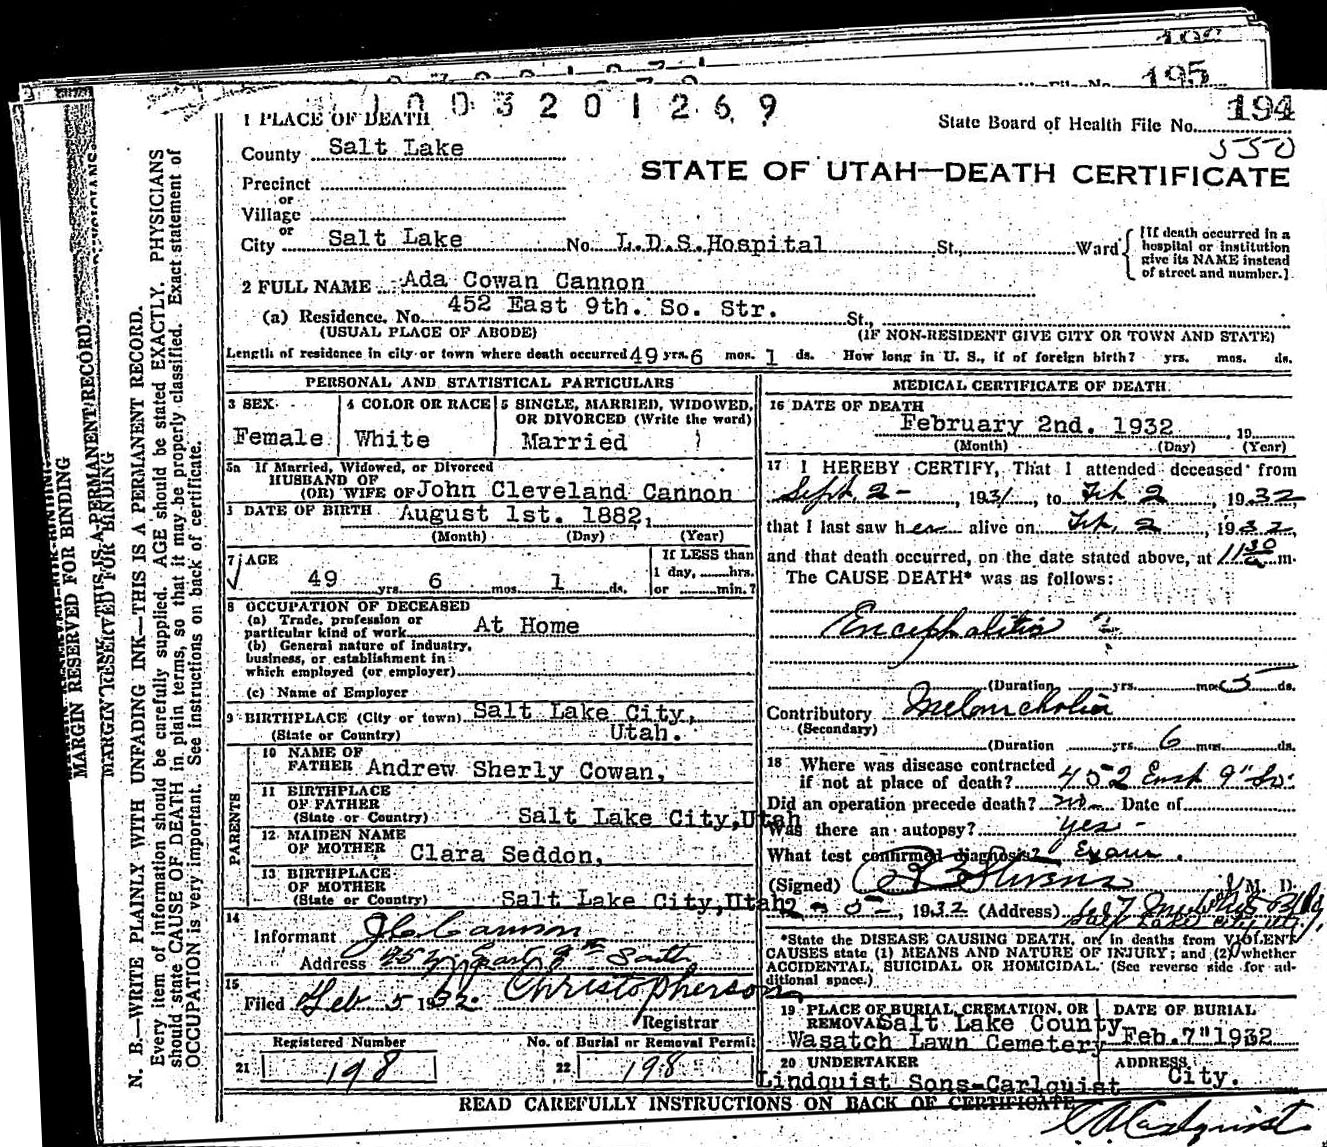 195
1003201269
194
State Board of Health File No.
550
1 PLACE OF DEATH
County Salt Lake
STATE OF UTAH—DEATH CERTIFICATE
Precinct
or
Village
or
City Salt Lake No. L.D.S.Hospital St., Ward
[If death occurred in a
hospital or institution
give its NAME instead
of street and number.]
2 FULL NAME Ada Cowan Cannon
(a) Residence. No. 452 East 9th. So. Str. St.,
(USUAL PLACE OF ABODE) (IF NON-RESIDENT GIVE CITY OR TOWN AND STATE)
Length of residence in city or town where death occurred 49 yrs. 6 mos. 1 ds. How long in U. S., if of foreign birth? yrs. mos. ds.
PERSONAL AND STATISTICAL PARTICULARS
3 SEX 4 COLOR OR RACE 5 SINGLE, MARRIED, WIDOWED,
OR DIVORCED (Write the word)
Female White Married
5a If Married, Widowed, or Divorced
HUSBAND OF
(OR) WIFE OF John Cleveland Cannon
DATE OF BIRTH August 1st. 1882,
(Month) (Day) (Year)
7 AGE If LESS than
1 day, hrs.
49 yrs 6 mos. 1 ds. or min.?
8 OCCUPATION OF DECEASED
(a) Trade, profession or
particular kind of work At Home
(b) General nature of Industry,
business, or establishment in
which employed (or employer)
(c) Name of Employer
9 BIRTHPLACE (City or town) Salt Lake City,
(State or Country) Utah.
PARENTS
10 NAME OF
FATHER Andrew Sherly Cowan,
11 BIRTHPLACE
OF FATHER
(State or Country) Salt Lake City,Utah
12 MAIDEN NAME
OF MOTHER Clara Seddon,
13 BIRTHPLACE
OF MOTHER
(State or Country) Salt Lake City,Utah
14
Informant J C Cannon
Address 452 East 9th South
15
Filed Feb 5 1932. Christopherson
Registrar
Registered Number No. of Burial or Removal Permit
21 198 22 198
MEDICAL CERTIFICATE OF DEATH
16 DATE OF DEATH
February 2nd. 1932, 19
(Month) (Day) (Year)
17 I HEREBY CERTIFY, That I attended deceased from
Sept 2 - , 1931, to Feb 2, 1932,
that I last saw her alive on Feb. 2, 1932,
and that death occurred, on the date stated above, at 11 30 a m.
The CAUSE DEATH* was as follows:
Encephalitis ?
(Duration yrs. mos. 5 ds.
Contributory Melancholia
(Secondary)
(Duration yrs. 6 mos. ds.
18 Where was disease contracted
if not at place of death? 452 East 9" So.
Did an operation precede death? no Date of
Was there an autopsy? yes -
What test confirmed diagnosis? Exam.
(Signed) Stevens M. D.
2 - 5 -, 1932 (Address)
Salt Lake City, Ut.
*State the DISEASE CAUSING DEATH, or, in deaths from VIOLENT
CAUSES state (1) MEANS AND NATURE OF INJURY; and (2) whether
ACCIDENTAL, SUICIDAL OR HOMICIDAL. (See reverse side for ad-
ditional space.)
19 PLACE OF BURIAL, CREMATION, OR
REMOVAL Salt Lake County
Wasatch Lawn Cemetery
DATE OF BURIAL
Feb. 7" 1932
20 UNDERTAKER
Lindquist Sons-Carlquist
ADDRESS
City.
READ CAREFULLY INSTRUCTIONS ON BACK OF CERTIFICATE
MARGIN RESERVED FOR BINDING
N. B.—WRITE PLAINLY WITH UNFADING INK—THIS IS A PERMANENT RECORD.
Every item of information should be carefully supplied. AGE should be stated EXACTLY. PHYSICIANS
should state CAUSE OF DEATH in plain terms, so that it may be properly classified. Exact statement of
OCCUPATION is very important. See instructions on back of certificate.